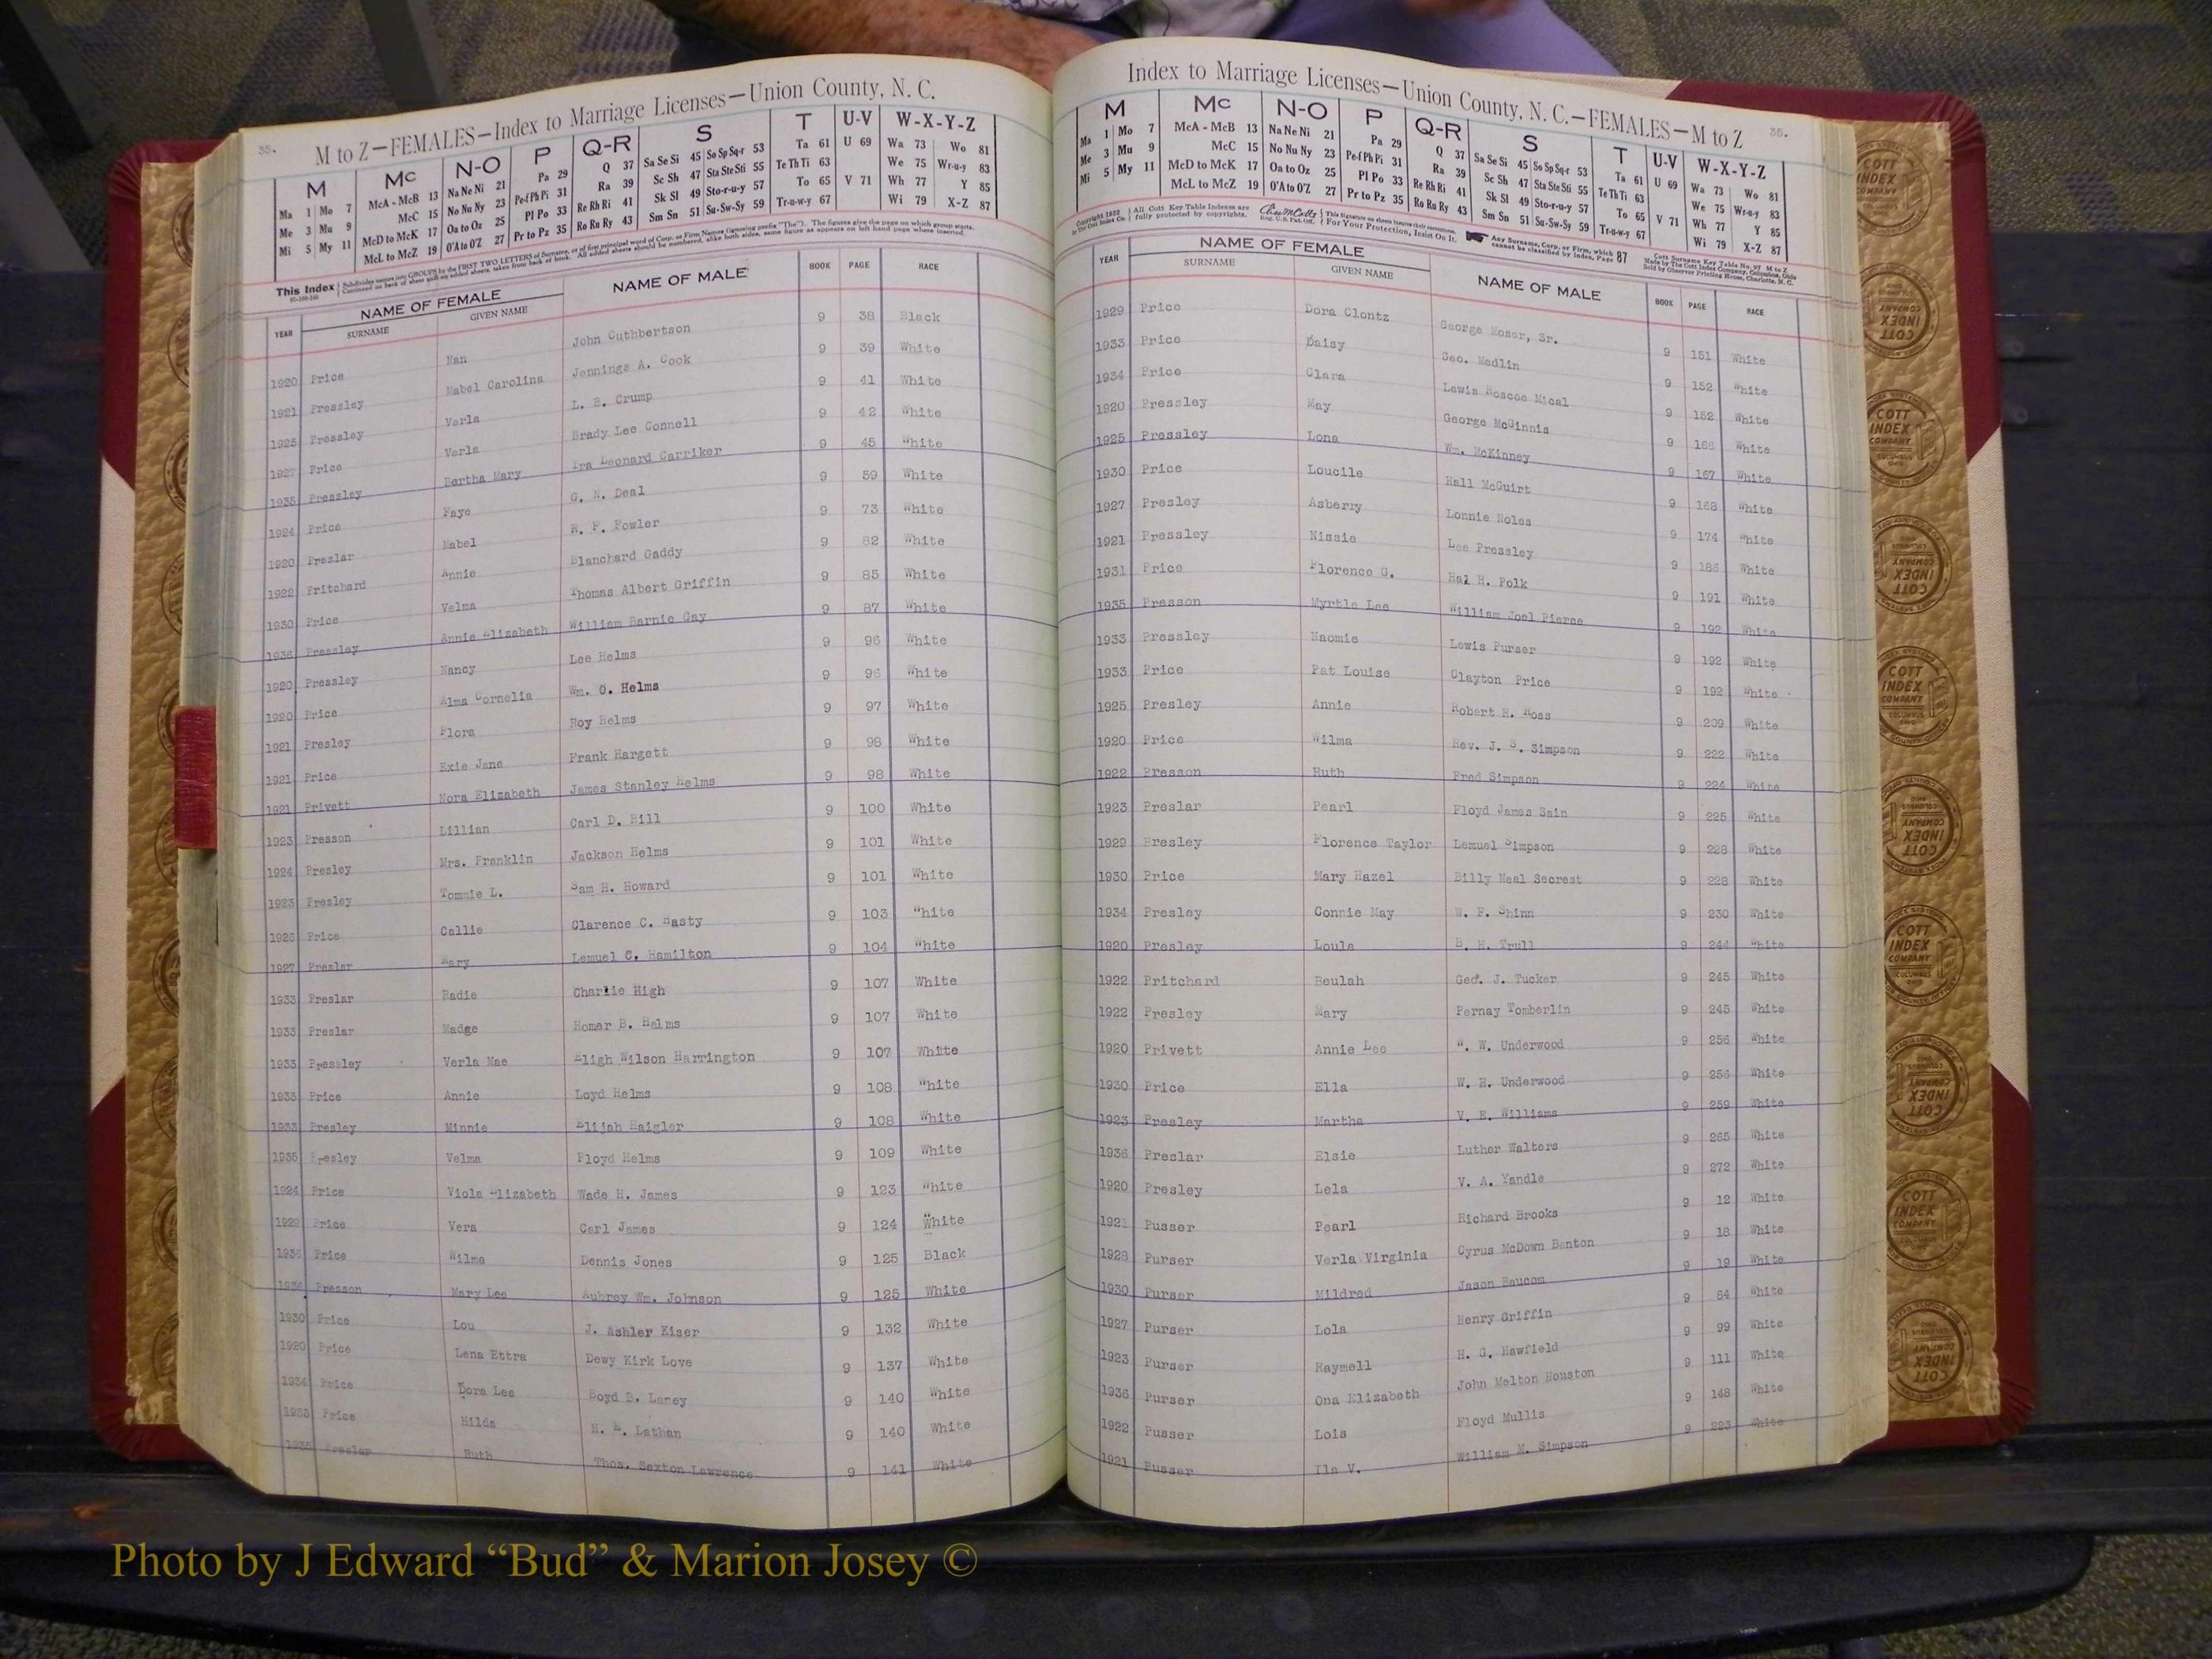 35.
M to Z—FEMALES—Index to Marriage Licenses—Union County, N. C.
M Mc N-O P Q-R S T U-V W-X-Y-Z
Ma 1 Mo 7 McA - McB 13 Na Ne Ni 21 Pa 29 Q 37 Sa Se Si 45 So Sp Sq-r 53 Ta 61 U 69 Wa 73 Wo 81
Me 3 Mu 9 McC 15 No Nu Ny 23 Pe-f Ph Pi 31 Ra 39 Sc Sh 47 Sta Ste Sti 55 Te Th Ti 63 We 75 Wr-u-y 83
Mi 5 My 11 McD to McK 17 Oa to Oz 25 Pl Po 33 Re Rh Ri 41 Sk Sl 49 Sto-r-u-y 57 To 65 V 71 Wh 77 Y 85
McL to McZ 19 O'A to O'Z 27 Pr to Pz 35 Ro Ru Ry 43 Sm Sn 51 Su-Sw-Sy 59 Tr-u-w-y 67 Wi 79 X-Z 87
This Index Subdivides names into GROUPS by the FIRST TWO LETTERS of Surname, or of first principal word of Corp. or Firm Names (ignoring prefix "The"). The figures give the page on which group starts.
Continued on back of sheet and on added sheets, taken from back of book. All added sheets should be numbered, alike both sides, same figure as appears on left hand page where inserted.
YEAR NAME OF FEMALE SURNAME GIVEN NAME NAME OF MALE BOOK PAGE RACE
1920 Price Nan John Cuthbertson 9 38 Black
1921 Pressley Mabel Carolina Jennings A. Cook 9 39 White
1925 Pressley Verla L. B. Crump 9 41 White
1927 Price Verla Brady Lee Connell 9 42 White
1935 Pressley Bertha Mary Ira Leonard Carriker 9 45 White
1924 Price Faye G. N. Deal 9 59 White
1920 Preslar Mabel R. F. Fowler 9 73 White
1922 Pritchard Annie Blanchard Gaddy 9 82 White
1930 Price Velma Thomas Albert Griffin 9 85 White
1936 Pressley Annie Elizabeth William Barnie Gay 9 87 White
1920 Pressley Nancy Lee Helms 9 96 White
1920 Price Alma Cornelia Wm. O. Helms 9 96 White
1921 Presley Flora Roy Helms 9 97 White
1921 Price Exie Jane Frank Hargett 9 98 White
1921 Privett Nora Elizabeth James Stanley Helms 9 98 White
1923 Presson Lillian Carl D. Hill 9 100 White
1924 Presley Mrs. Franklin Jackson Helms 9 101 White
1923 Presley Tommie L. Sam H. Howard 9 101 White
1926 Price Callie Clarence C. Hasty 9 103 White
1927 Preslar Mary Lemuel C. Hamilton 9 104 White
1933 Preslar Radie Charlie High 9 107 White
1933 Preslar Madge Homer B. Helms 9 107 White
1933 Pressley Verla Mae Bligh Wilson Harrington 9 107 White
1933 Price Annie Loyd Helms 9 108 White
1933 Presley Minnie Elijah Haigler 9 108 White
1935 Presley Velma Floyd Helms 9 109 White
1924 Price Viola Elizabeth Wade H. James 9 123 White
1929 Price Vera Carl James 9 124 White
1935 Price Wilma Dennis Jones 9 125 Black
1936 Presson Mary Lee Aubrey Wm. Johnson 9 125 White
1930 Price Lou J. Ashler Kiser 9 132 White
1920 Price Lena Ettra Dewy Kirk Love 9 137 White
1934 Price Dora Lee Boyd B. Laney 9 140 White
1933 Price Hilda H. E. Lathan 9 140 White
1935 Preslar Ruth Thos. Sexton Lawrence 9 141 White
Index to Marriage Licenses—Union County, N. C.—FEMALES—M to Z
36.
M Mc N-O P Q-R S T U-V W-X-Y-Z
Ma 1 Mo 7 McA - McB 13 Na Ne Ni 21 Pa 29 Q 37 Sa Se Si 45 So Sp Sq-r 53 Ta 61 U 69 Wa 73 Wo 81
Me 3 Mu 9 McC 15 No Nu Ny 23 Pe-f Ph Pi 31 Ra 39 Sc Sh 47 Sta Ste Sti 55 Te Th Ti 63 We 75 Wr-u-y 83
Mi 5 My 11 McD to McK 17 Oa to Oz 25 Pl Po 33 Re Rh Ri 41 Sk Sl 49 Sto-r-u-y 57 To 65 V 71 Wh 77 Y 85
McL to McZ 19 O'A to O'Z 27 Pr to Pz 35 Ro Ru Ry 43 Sm Sn 51 Su-Sw-Sy 59 Tr-u-w-y 67 Wi 79 X-Z 87
Copyright 1932 by The Cott Index Co. All Cott Key Table Indexes are fully protected by copyrights. Reg. U.S. Pat. Off. This Signature on sheets insures their correctness. For Your Protection, Insist On It. Any Surname, Corp. or Firm, which cannot be classified by Index, Page 87 Cott Surname Key Table No. 97 M to Z Made by The Cott Index Company, Columbus, Ohio Sold by Observer Printing House, Charlotte, N. C.
YEAR NAME OF FEMALE SURNAME GIVEN NAME NAME OF MALE BOOK PAGE RACE
1929 Price Dora Clontz George Moser, Sr. 9 151 White
1933 Price Daisy Geo. Medlin 9 152 White
1934 Price Clara Lewis Roscoe Mical 9 152 White
1920 Pressley May George McGinnis 9 166 White
1925 Pressley Lona Wm. McKinney 9 167 White
1930 Price Loucile Hall McGuirt 9 168 White
1927 Presley Asberry Lonnie Noles 9 174 White
1921 Pressley Nissie Lee Pressley 9 186 White
1931 Price Florence G. Hal H. Polk 9 191 White
1935 Presson Myrtle Lee William Joel Pierce 9 192 White
1933 Pressley Naomie Lewis Purser 9 192 White
1933 Price Pat Louise Clayton Price 9 192 White
1925 Presley Annie Robert H. Ross 9 209 White
1920 Price Wilma Rev. J. S. Simpson 9 222 White
1922 Presson Ruth Fred Simpson 9 224 White
1923 Preslar Pearl Floyd James Sain 9 225 White
1929 Presley Florence Taylor Lemuel Simpson 9 228 White
1930 Price Mary Hazel Billy Neal Secrest 9 228 White
1934 Presley Connie May W. F. Shinn 9 230 White
1920 Presley Loula B. H. Trull 9 244 White
1922 Pritchard Beulah Geo. J. Tucker 9 245 White
1922 Presley Mary Pernay Tomberlin 9 245 White
1920 Privett Annie Lee W. W. Underwood 9 256 White
1930 Price Ella W. H. Underwood 9 256 White
1923 Presley Martha V. E. Williams 9 259 White
1936 Preslar Elsie Luther Walters 9 265 White
1920 Presley Lela V. A. Yandle 9 272 White
1921 Pusser Pearl Richard Brooks 9 12 White
1928 Purser Verla Virginia Cyrus McDown Benton 9 18 White
1930 Purser Mildred Jason Baucom 9 19 White
1927 Purser Lola Henry Griffin 9 84 White
1923 Purser Raymell H. G. Hawfield 9 99 White
1936 Purser Ona Elizabeth John Melton Houston 9 111 White
1922 Pusser Lois Floyd Mullis 9 148 White
1921 Pusser Ila V. William M. Simpson 9 223 White
COTT INDEX COMPANY
Photo by J Edward “Bud” & Marion Josey ©